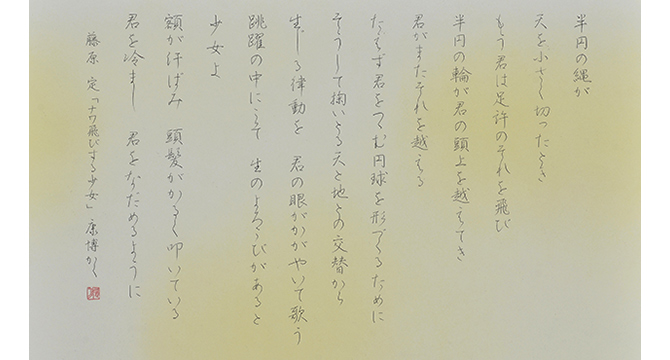 半円の縄が
天を小さく切ったとき
もう君は足許のそれを飛び
半円の輪が君の頭上を越えてき
君がまたそれを越える
たえず君をつつむ円球を形づくるために
そうして掬いとる天と地との交替から
生じる律動を 君の眼がかがやいて歌う
跳躍の中にこそ 生のよろこびがあると
少女よ
額が汗ばみ 頭髪がかるく叩いている
君を冷まし 君をなだめるように
藤原 定「ナワ飛びする少女」 康博かく